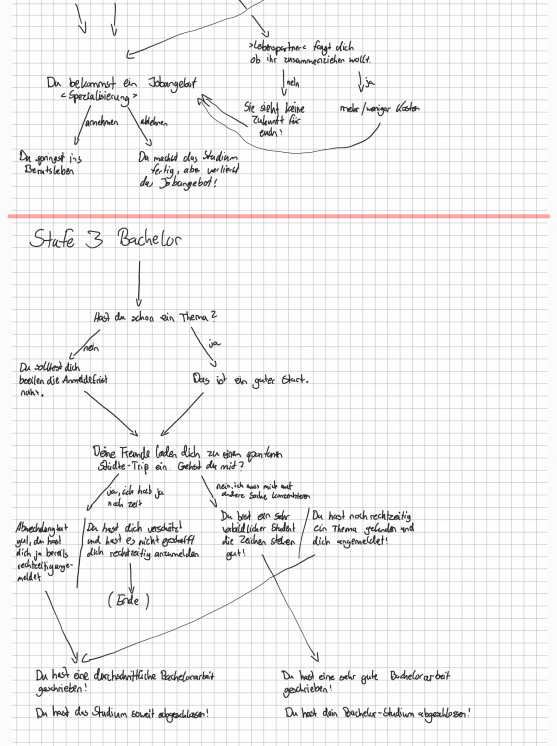 >Lebenspartner< fragt dich
ob ihr zusammenziehen wollt.
nein
ja
Du bekommst ein Jobangebot
< Spezialisierung >
Sie sieht keine
Zukunft für
euch!
mehr/weniger Kosten
annehmen
ablehnen
Du springst ins
Berufsleben
Du machst das Studium
fertig, aber verlierst
das Jobangebot!
Stufe 3 Bachelor
Hast du schon ein Thema?
nein
ja
Du solltest dich
beeilen die Anmeldefrist
naht.
Das ist ein guter Start.
Deine Freunde laden dich zu einen spontanen
Städte-Trip ein. Gehst du mit?
ja, ich hab ja
noch zeit
nein, ich muss mich auf
andere Sache konzentrieren
Abwechslung tut
gut, du hast
dich ja bereits
rechtzeitig ange-
meldet
Du hast dich verschätzt
und hast es nicht geschafft
dich rechtzeitig anzumelden
(Ende)
Du bist ein sehr
vorbildlicher Student
die Zeichen stehen
gut!
Du hast noch rechtzeitig
ein Thema gefunden und
dich angemeldet!
Du hast eine durchschnittliche Bachelorarbeit
geschrieben!
Du hast das Studium soweit abgeschlossen!
Du hast eine sehr gute Bachelorarbeit
geschrieben!
Du hast dein Bachelor-Studium abgeschlossen!